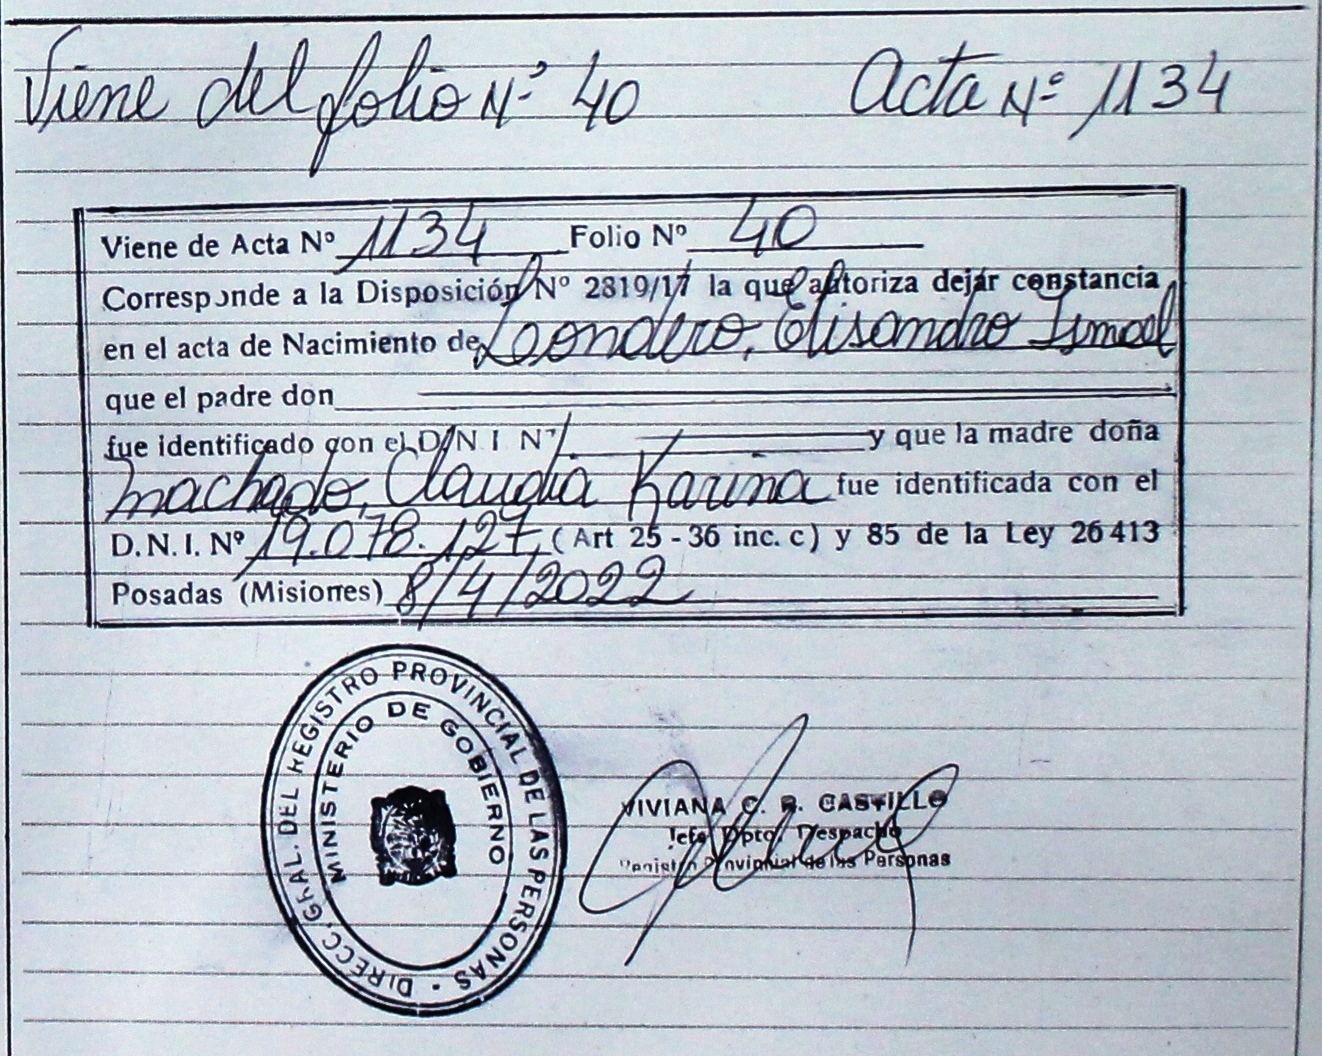 Viene del folio Nº 40 Acta Nº 1134
Viene de Acta Nº 1134 Folio Nº 40
Corresponde a la Disposición Nº 2819/17 la que autoriza dejar constancia
en el acta de Nacimiento de Londero, Elisandro Ismael
que el padre don
fue identificado con el D.N.I Nº y que la madre doña
Machado, Claudia Karina fue identificada con el
D.N.I. Nº 19.078.127, (Art 25-36 inc. c) y 85 de la Ley 26413
Posadas (Misiones) 8/4/2022
DIRECC. GRAL. DEL REGISTRO PROVINCIAL DE LAS PERSONAS
MINISTERIO DE GOBIERNO
VIVIANA C. R. CASTILLO
Jefe Dpto. Despacho
Registro Provincial de las Personas